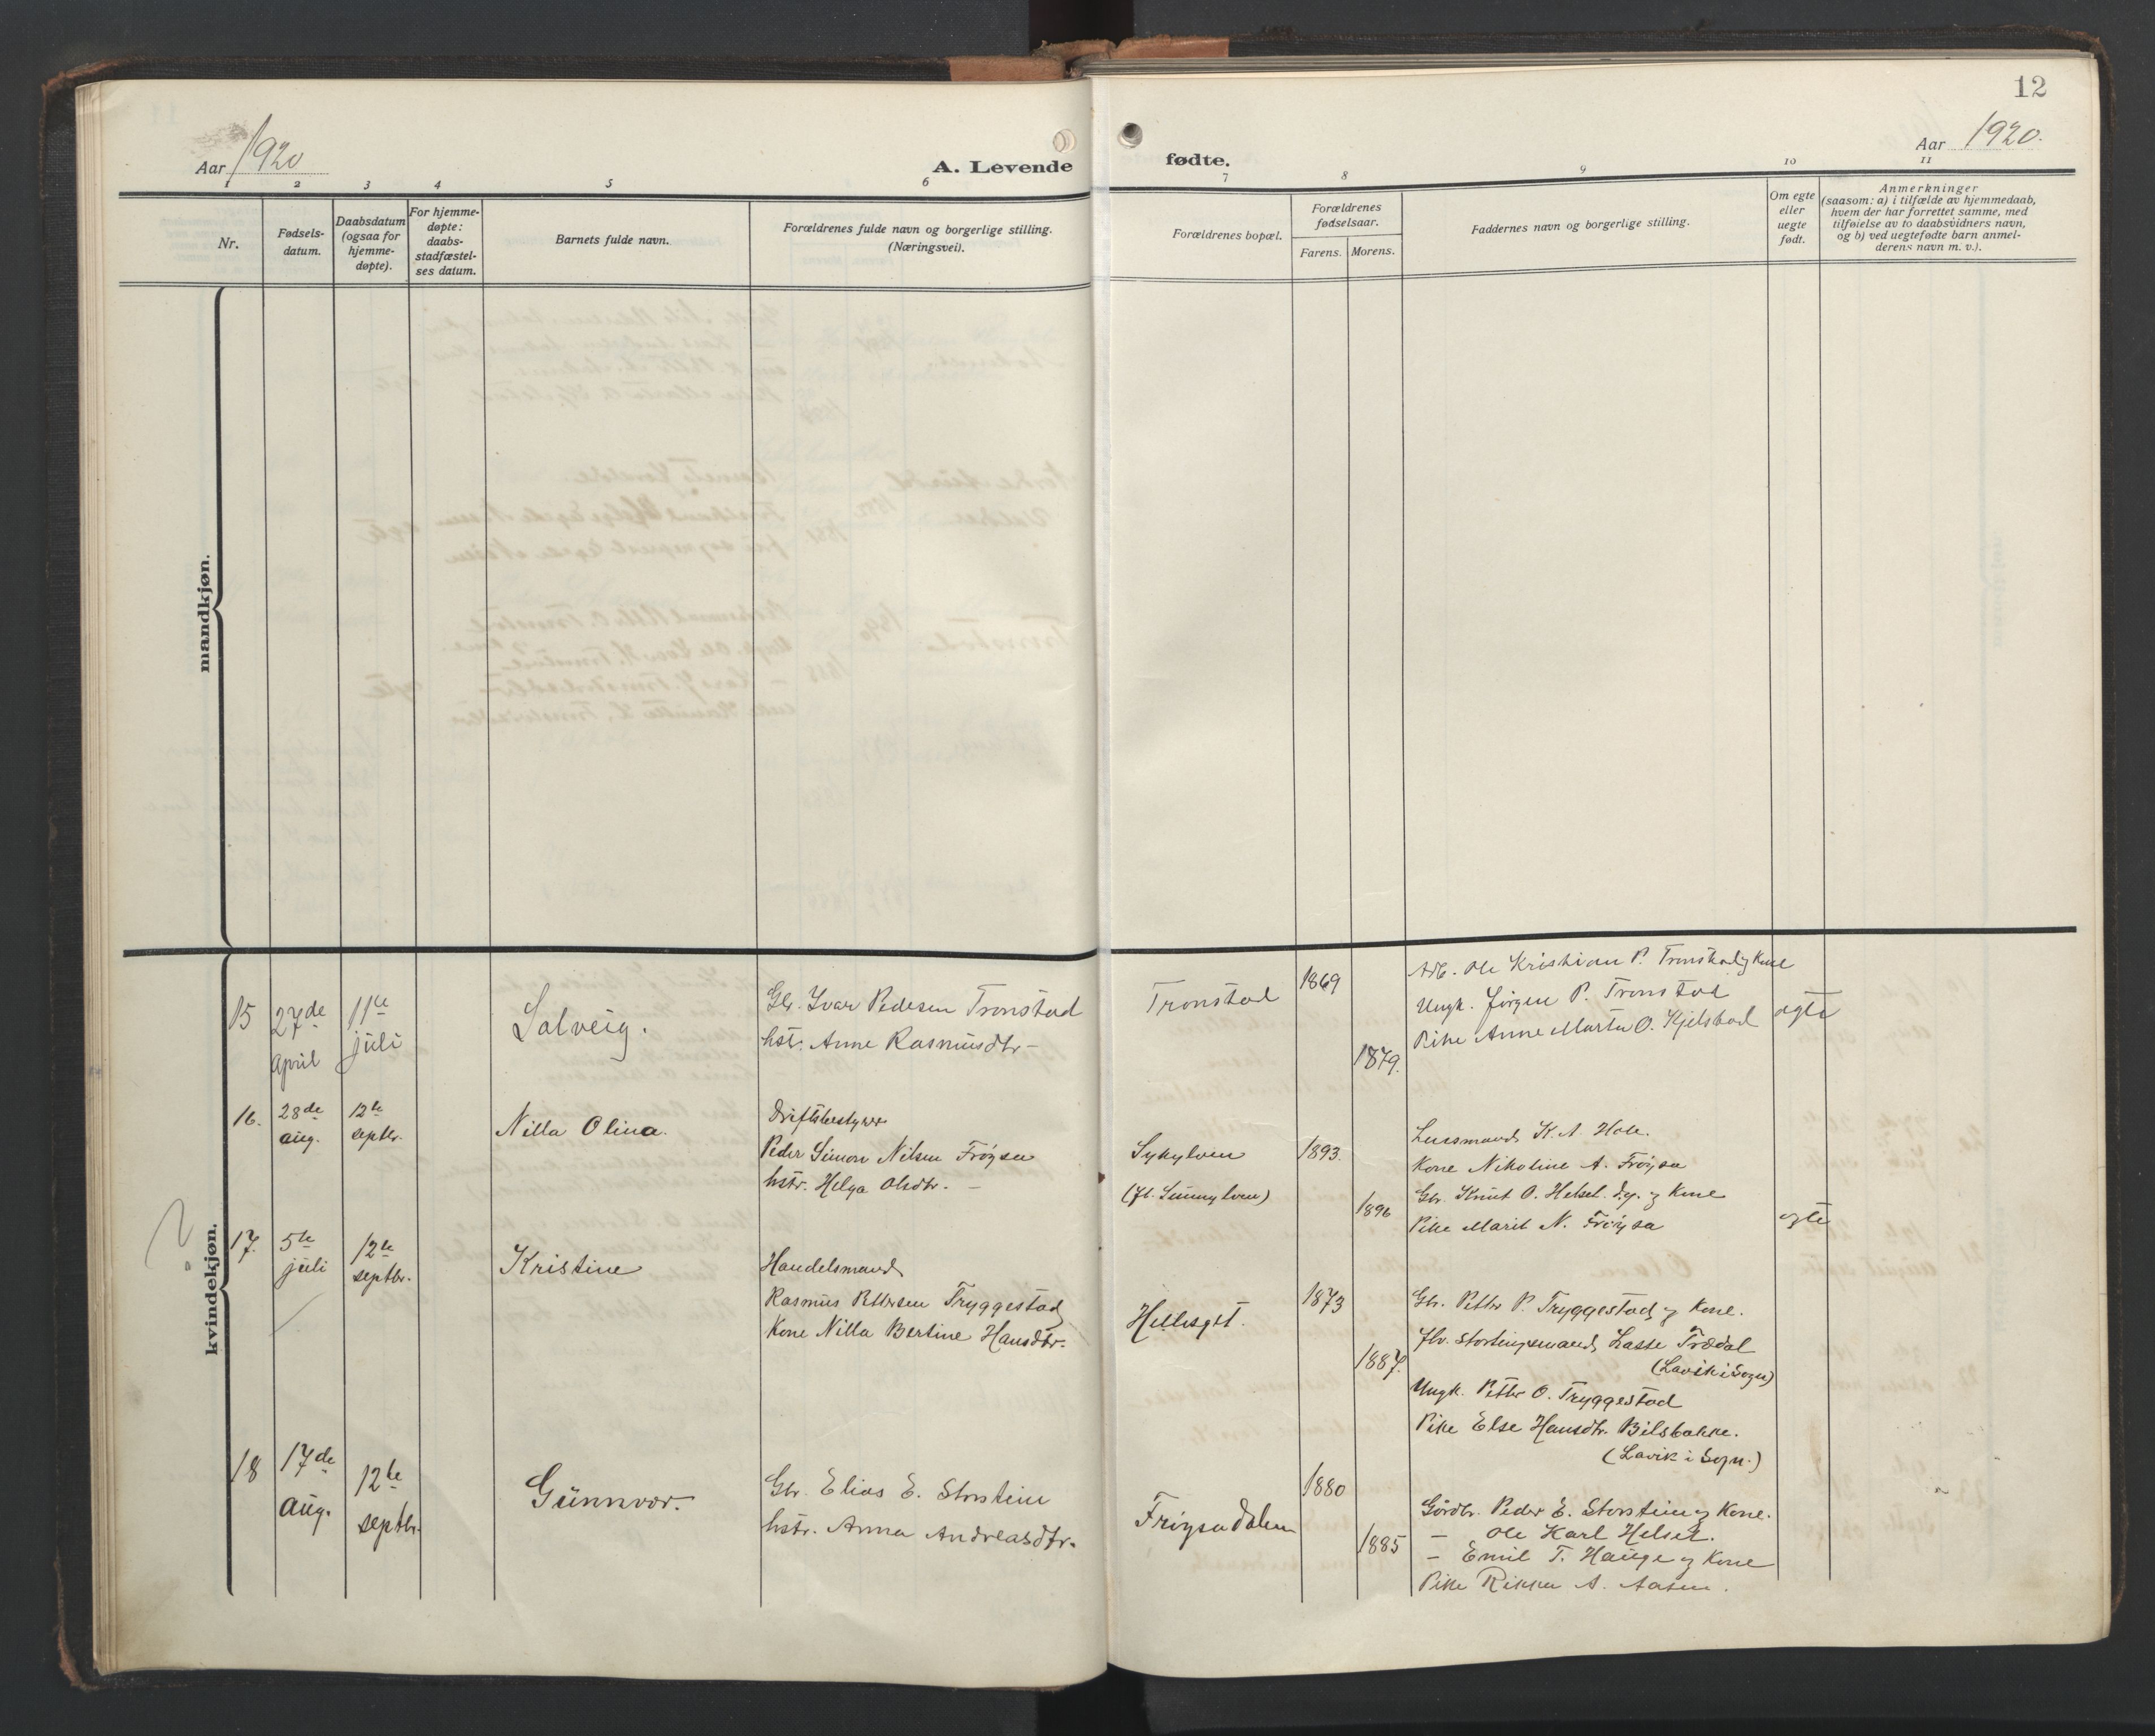 12
Aar 1920
A. Levende
fødte.
Aar 1920.
1 2 3 4 5 6 7 8 9 10 11
Nr.
Fødsels-
datum.
Daabsdatum
(ogsaa for
hjemme-
døpte).
For hjemme-
døpte:
daabs-
stadfæstel-
ses datum.
Barnets fulde navn.
Forældrenes fulde navn og borgerlige stilling.
(Næringsvei).
Forældrenes bopæl.
Forældrenes
fødselsaar.
Farens. Morens.
Faddernes navn og borgerlige stilling.
Om egte
eller
uegte
født.
Anmerkninger
(saasom: a) i tilfælde av hjemmedaab,
hvem der har forrettet samme, med
tilføielse av to daabsvidners navn,
og b) ved uegtefødte barn anmel-
derens navn m. v.).
mandkjøn.
kvindekjøn.
15
27de
april
11te
juli
Solveig.
Gbr. Ivar Pedersen Tronstad
hstr. Anne Rasmusdtr.
Tronstad
1869
1879.
Arb. Ole Kristian P. Tronstad og Kone
Ungk. Jørgen P. Tronstad
Pike Anne Marta O. Hjelstad
egte
16.
28de
aug.
12te
septbr.
Nilla Olina.
Driftsbestyrer
Peder Simon Nilsen Frøysa
hstr. Helga Olsdtr.
Sykylven
(fl. Sunnylven)
1893.
1896
Lensmand K. A. Hole.
Kone Nikoline A. Frøysa
Gbr. Knut O. Helset. og Kone
Pike Marit N. Frøysa
egte
17.
5te
juli
12te
septbr.
Kristine
Handelsmand
Rasmus Pettersen Tryggestad
Kone Nilla Bertine Hansdtr.
Hellesylt.
1873
1887.
Gbr. Petter P. Tryggestad og Kone.
fhv. Stortingsmand Lasse Trædal
(Lavik i Sogn)
Ungk. Petter O. Tryggestad
Pike Else Hansdtr. Bilsbakke.
(Lavik i Sogn.)
18
17de
aug.
12te
septbr.
Gunnvor.
Gbr. Elias E. Storstein
hstr. Anna Andreasdtr.
Frøysadalen
1880
1885
Gårdbr. Peder E. Storstein og Kone.
— Ole Karl Helset.
— Emil T. Hauge og Kone
Pike Rikka A. Aasen.